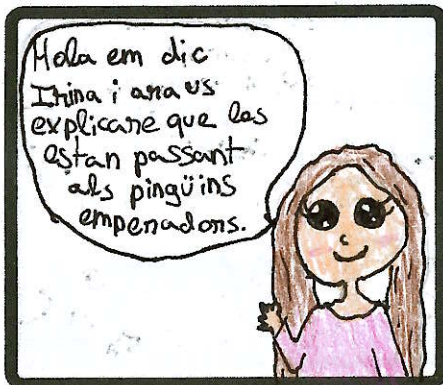 Hola em dic
Irina i ara us
explicare que les
estan passant
als pingüins
emperadors.